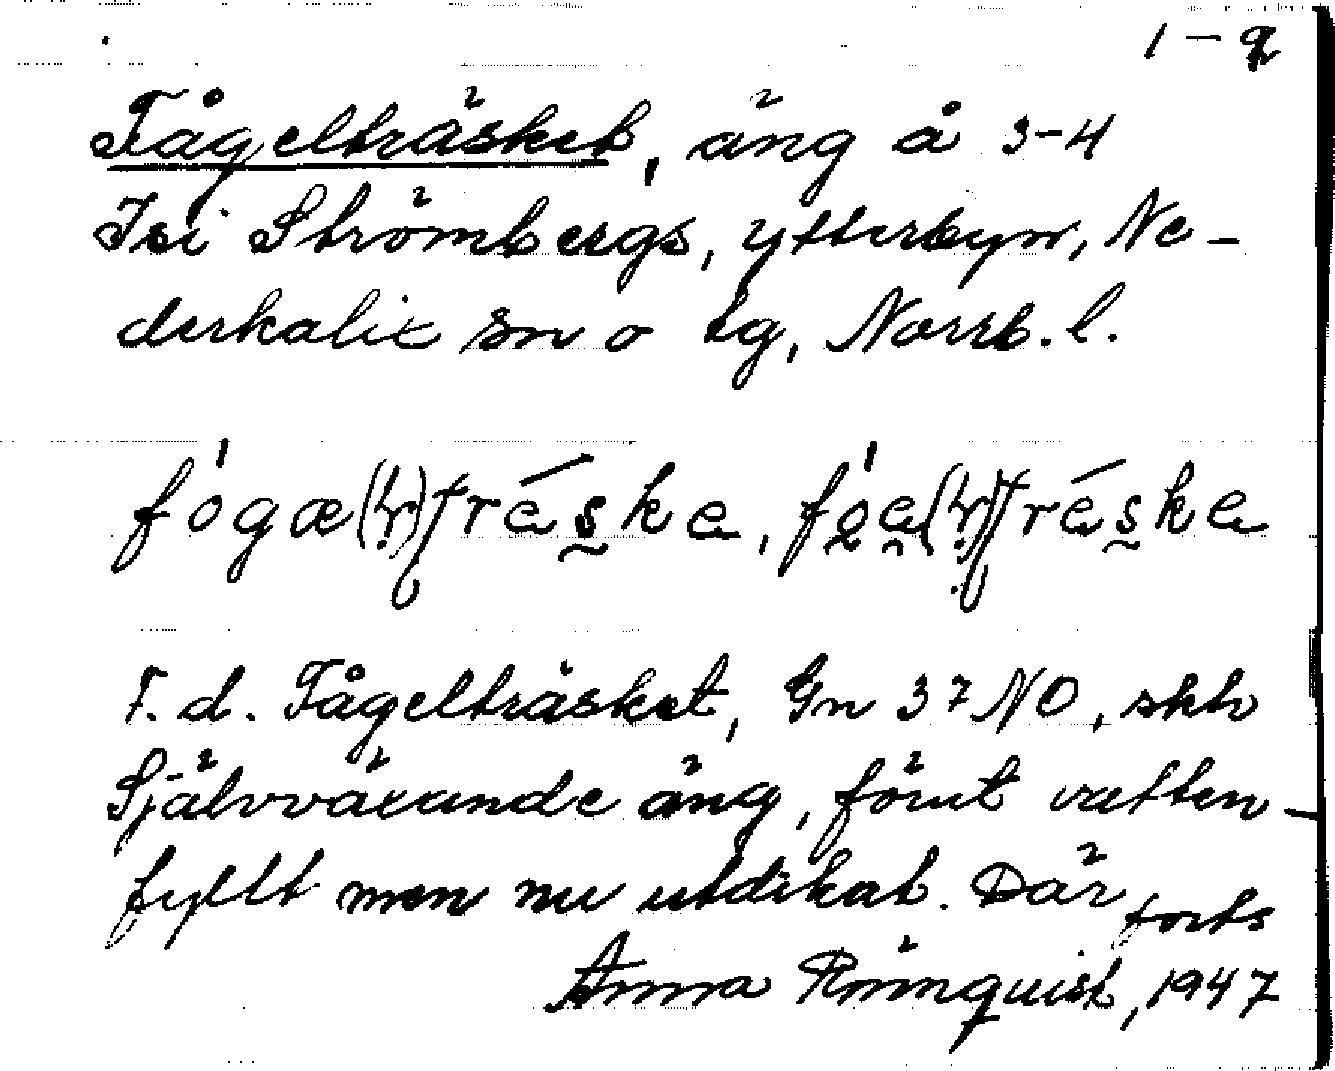 1 – 2
Fågelträsket, äng å 3-4
Isi Strömbergs, Ytterbyn, Ne-
derkalix sn o tg, Norrb. l.
F. d. Fågelträsket, Gn 37 NO, skh
Självväxande äng, förut vatten-
fyllt men nu utdikat. Där forts
Anna Rönnquist, 1947